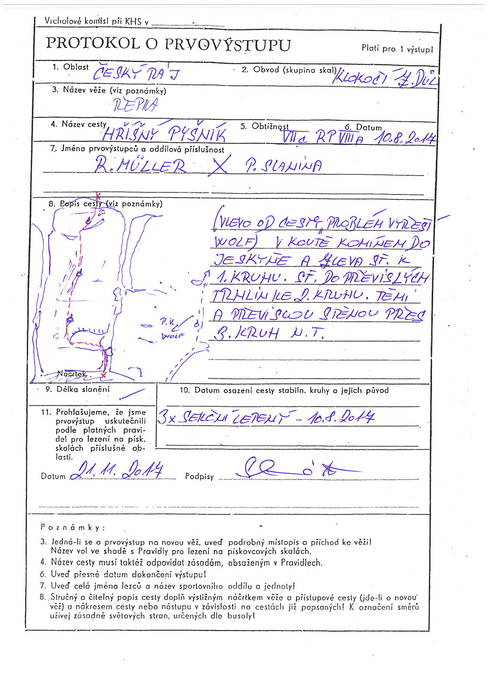 Vrcholové komisi při KHS v
PROTOKOL O PRVOVÝSTUPU
Platí pro 1 výstup!
1. Oblast ČESKÝ RÁJ
2. Obvod (skupina skal) KLOKOČÍ Z. DŮL
3. Název věže (viz poznámky)
ŘEPKA
4. Název cesty HŘÍŠNÝ PYŠNÍK
5. Obtížnost VIIc RP VIIIA
6. Datum 10.8.2017
7. Jména prvovýstupců a oddílová příslušnost
R. MÜLLER X P. SLANINA
8. Popis cesty (viz poznámky)
(VLEVO OD CESTY PROBLÉM VYŘEŠÍ
WOLF) V KOUTĚ KOMÍNEM DO
JESKYNĚ A ZLEVA SŤ. K
1. KRUHU. SŤ. DO PŘEVISLÝCH
TRHLIN KE 2. KRUHU. TĚMI
A PŘEVISLOU STĚNOU PŘES
3. KRUH N.T.
P.V.
WOLF
Náčrtek
9. Délka slanění
10. Datum osazení cesty stabiln. kruhy a jejich původ
3x SEKČNÍ LEPENÝ - 10.8.2017
11. Prohlašujeme, že jsme
prvovýstup uskutečnili
podle platných pravi-
del pro lezení na písk.
skalách příslušné ob-
lasti.
Datum 21.11.2017 Podpisy
Poznámky:
3. Jedná-li se o prvovýstup na novou věž, uveď podrobný místopis a příchod ke věži!
Název vol ve shodě s Pravidly pro lezení na pískovcových skalách.
4. Název cesty musí taktéž odpovídat zásadám, obsaženým v Pravidlech.
6. Uveď přesné datum dokončení výstupu!
7. Uveď celá jména lezců a název sportovního oddílu a jednoty!
8. Stručný a čitelný popis cesty doplň výstižným náčrtkem věže a přístupové cesty (jde-li o novou
věž) a nákresem cesty nebo nástupu v závislosti na cestách již popsaných! K označení směrů
užívej zásadně světových stran, určených dle busoly!